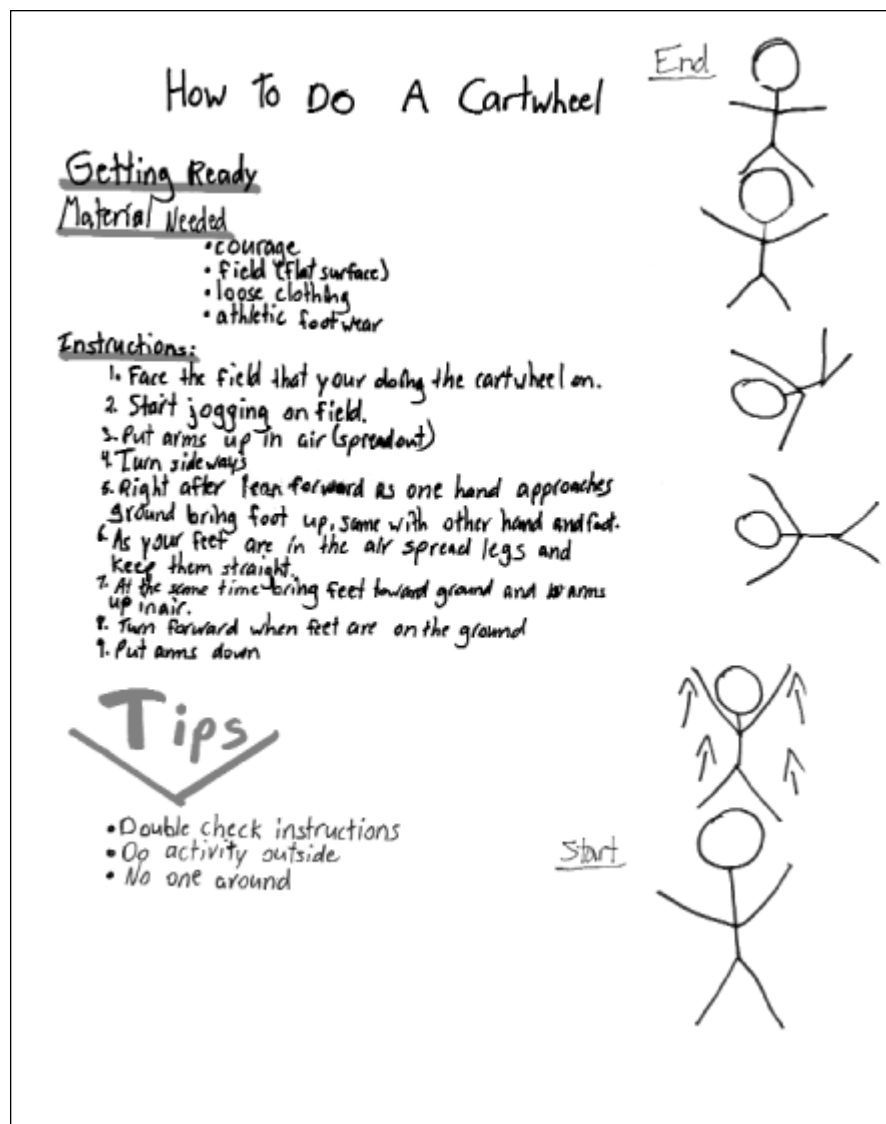 How To Do A Cartwheel
End
Getting Ready
Material Needed
• courage
• field (flat surface)
• loose clothing
• athletic footwear
Instructions:
1. Face the field that your doing the cartwheel on.
2. Start jogging on field.
3. Put arms up in air (spread out)
4. Turn sideways
5. Right after lean forward as one hand approaches
ground bring foot up, same with other hand and foot.
6. As your feet are in the air spread legs and
keep them straight.
7. At the same time bring feet toward ground and arms
up in air.
8. Turn forward when feet are on the ground
9. Put arms down
Tips
• Double check instructions
• Do activity outside
• No one around
Start